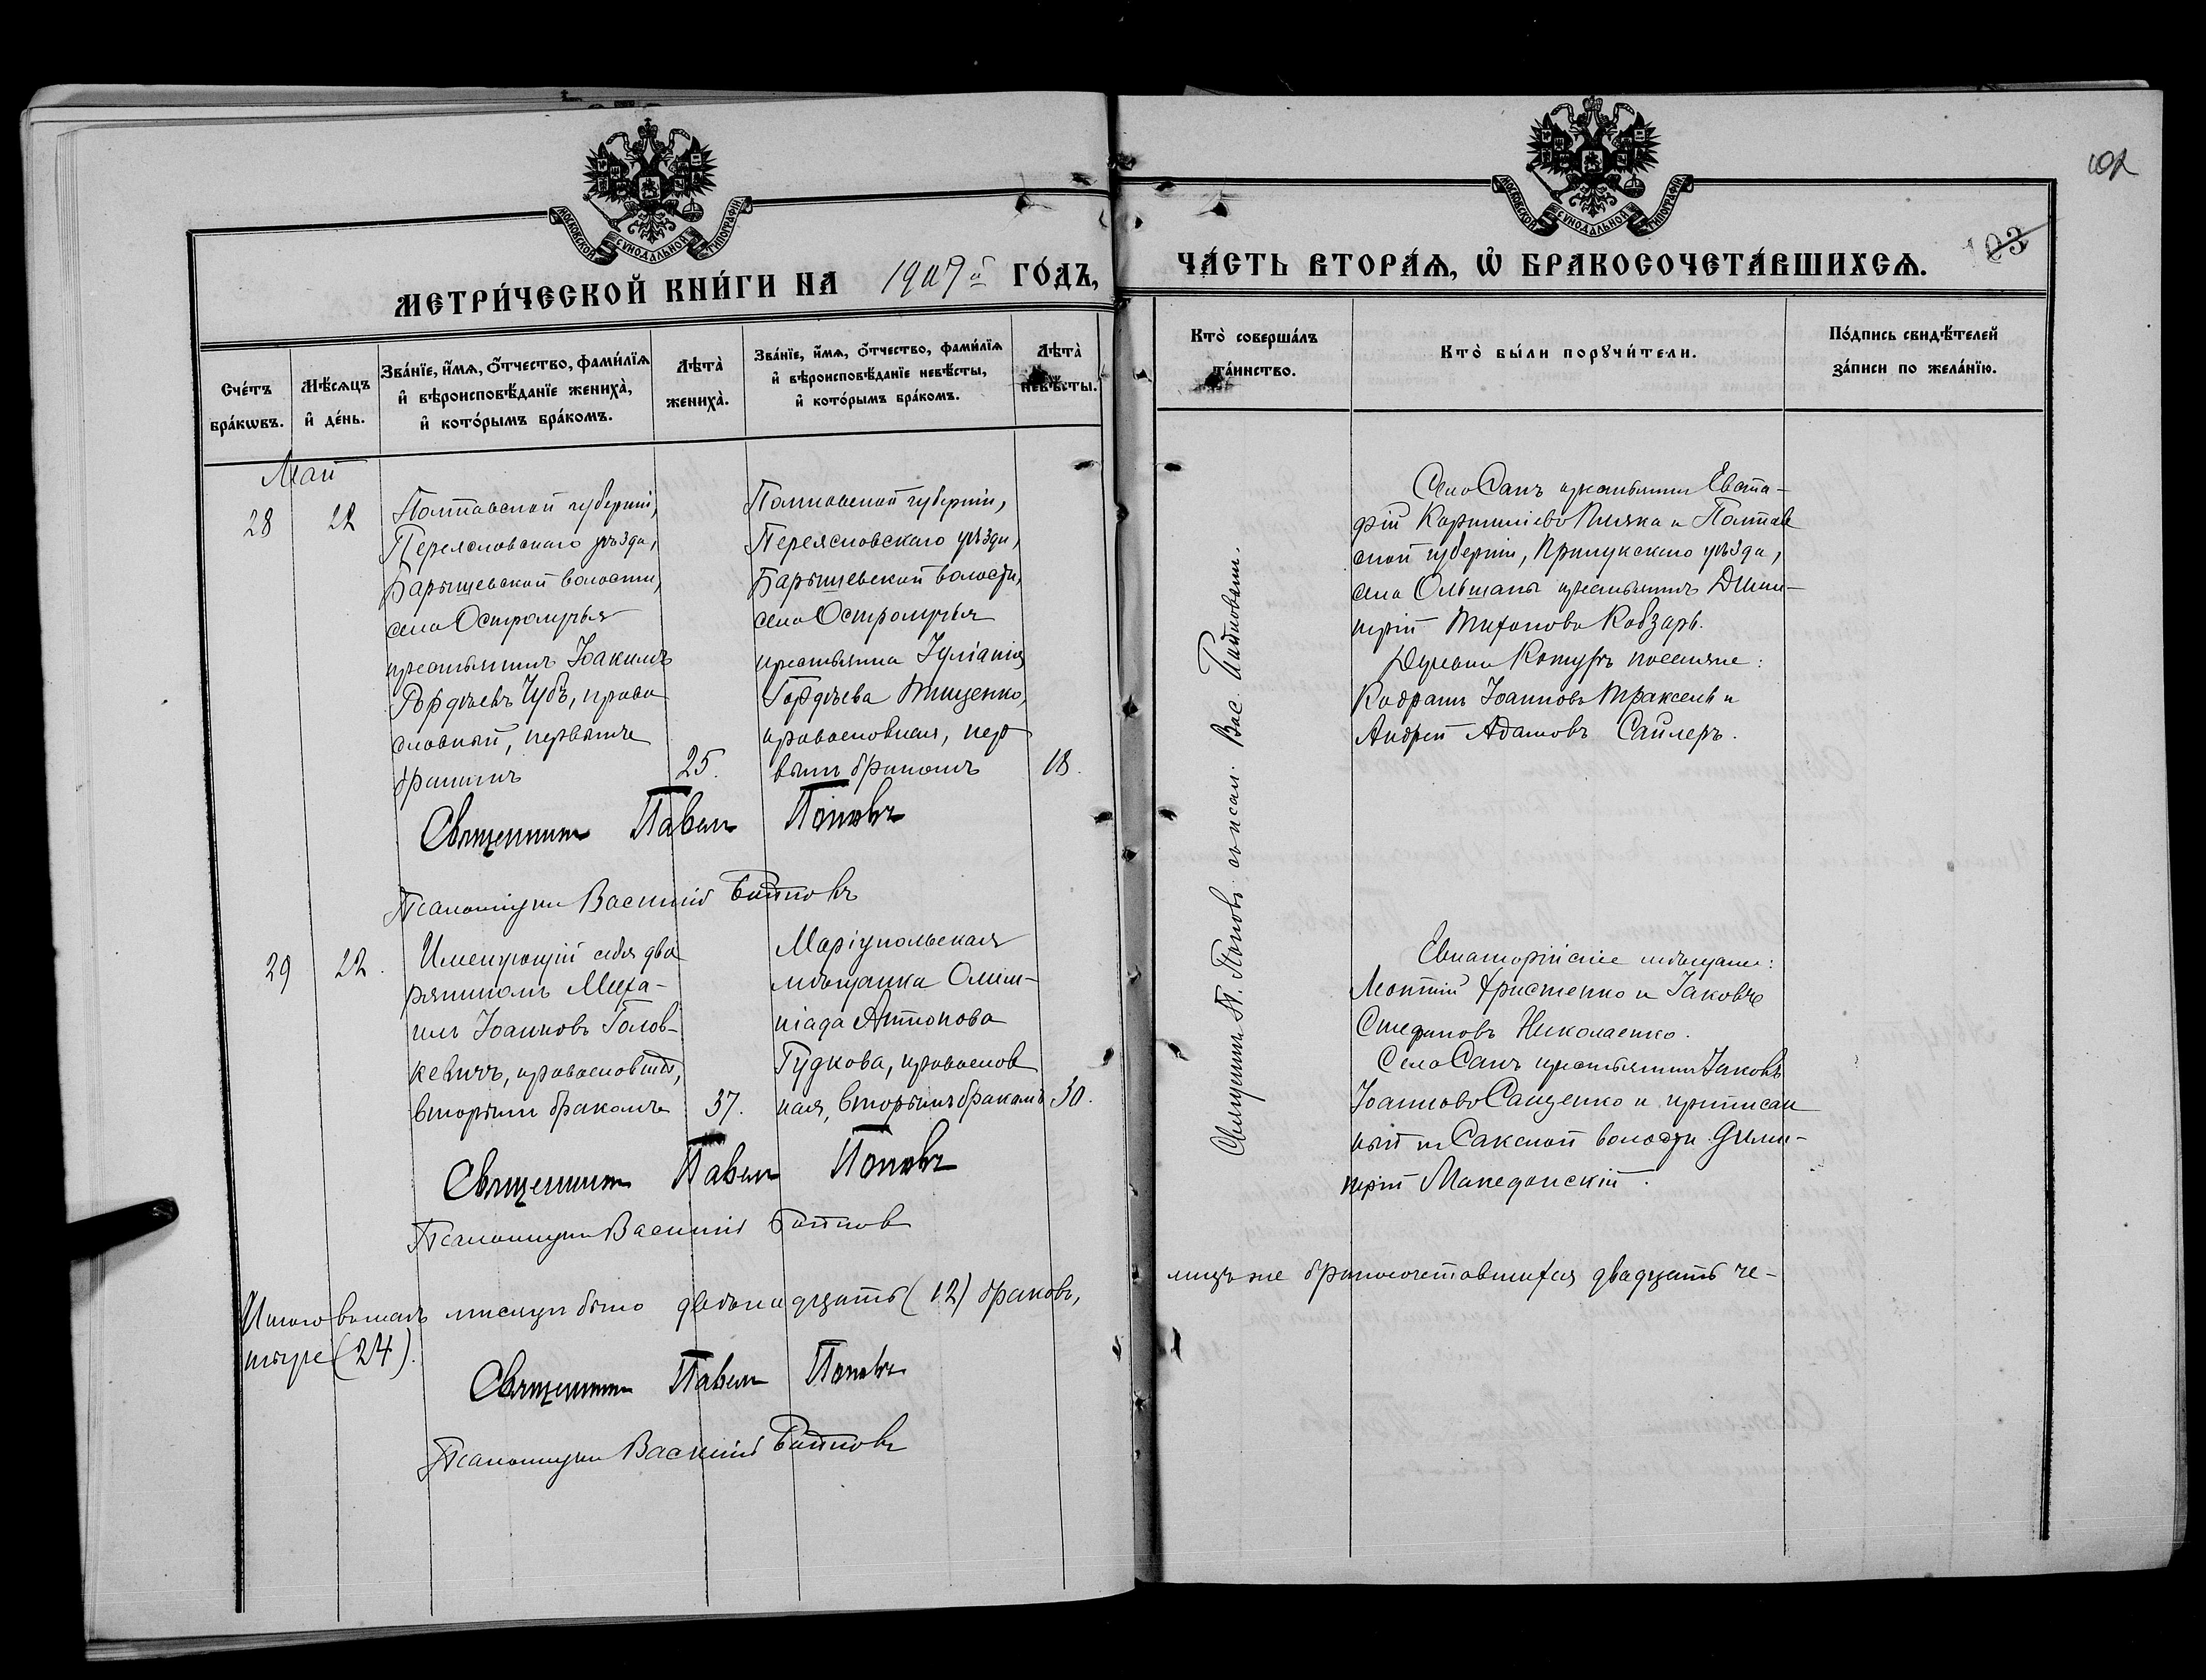 МОСКОВСКОЙ СѴНОДАЛЬНОЙ ТИПОГРАФІИ
МЕТРИ́ЧЕСКОЙ КНИ́ГИ НА 1907й ГО́ДЪ,
Сче́тъ бра́кѡвъ.
Мѣ́сяцъ и҆ де́нь.
Зва́нїе, и҆́мѧ, ѻ҆́тчество, фами́лїѧ
и҆ вѣроисповѣ́данїе жениха̀,
и҆ кото́рымъ бра́комъ.
Лѣта̀
жениха̀.
Зва́нїе, и҆́мѧ, ѻ҆́тчество, фами́лїѧ
и҆ вѣроисповѣ́данїе невѣ́сты,
и҆ кото́рымъ бра́комъ.
Лѣта̀
невѣ́сты.
Май
28
22
Полтавской губерніи,
Переясловскаго уѣзда,
Барышевской волости,
села Остролучья
крестьянинъ Іоакимъ
Гордѣевъ Чубъ, право
славный, первымъ
бракомъ
25.
Полтавской губерніи,
Переясловскаго уѣзда,
Барышевской волости,
села Остролучья
крестьянка Іуліанія
Гордѣева Тищенко,
православная, пер
вымъ бракомъ
18.
Священникъ Павелъ Поповъ
Псаломщикъ Василій
29
22.
Именующій себя дво
ряниномъ Миха-
илъ Іоанновъ Голов-
кевичъ, православный,
вторымъ бракомъ
37.
Маріупольская
мѣщанка Олим-
піада Антонова
Гудкова, православ
ная, вторымъ бракомъ
30.
Священникъ Павелъ Поповъ
Псаломщикъ Василій
Итого въ маѣ мѣсяцѣ было двѣнадцать (12) браковъ,
тыре (24).
Священникъ Павелъ Поповъ
Псаломщикъ Василій
МОСКОВСКОЙ СѴНОДАЛЬНОЙ ТИПОГРАФІИ
102
103
ЧА́СТЬ ВТОРА́Ѧ, Ѡ҆ БРАКОСОЧЕТА́ВШИХСѦ.
Кто̀ соверша́лъ
та́инство.
Кто̀ бы́ли порꙋчи́тели.
По́дпись свидѣ́телей
за́писи по жела́нїю.
Священникъ П. Поповъ съ псал. Вас.
Села Сакъ крестьянинъ Евста-
фій и Полтав
ской губерніи, Прилукскаго уѣзда,
села Ольшаны крестьянинъ Дими-
трій Тихоновъ Кобзарь.
Деревни поселяне:
Кодратъ Іоанновъ Траксель и
Андрей Адамовъ Сайлеръ.
Евпаторійскіе мѣщане:
Леонтій Христенко и Іаковъ
Стефановъ Николаенко.
Села Сакъ крестьянинъ Іаковъ
Іоанновъ Сащенко и приписан
ный къ Сакской волости Дими-
трій Македонскій.
лицъ же бракосочетавшихся двадцать че-